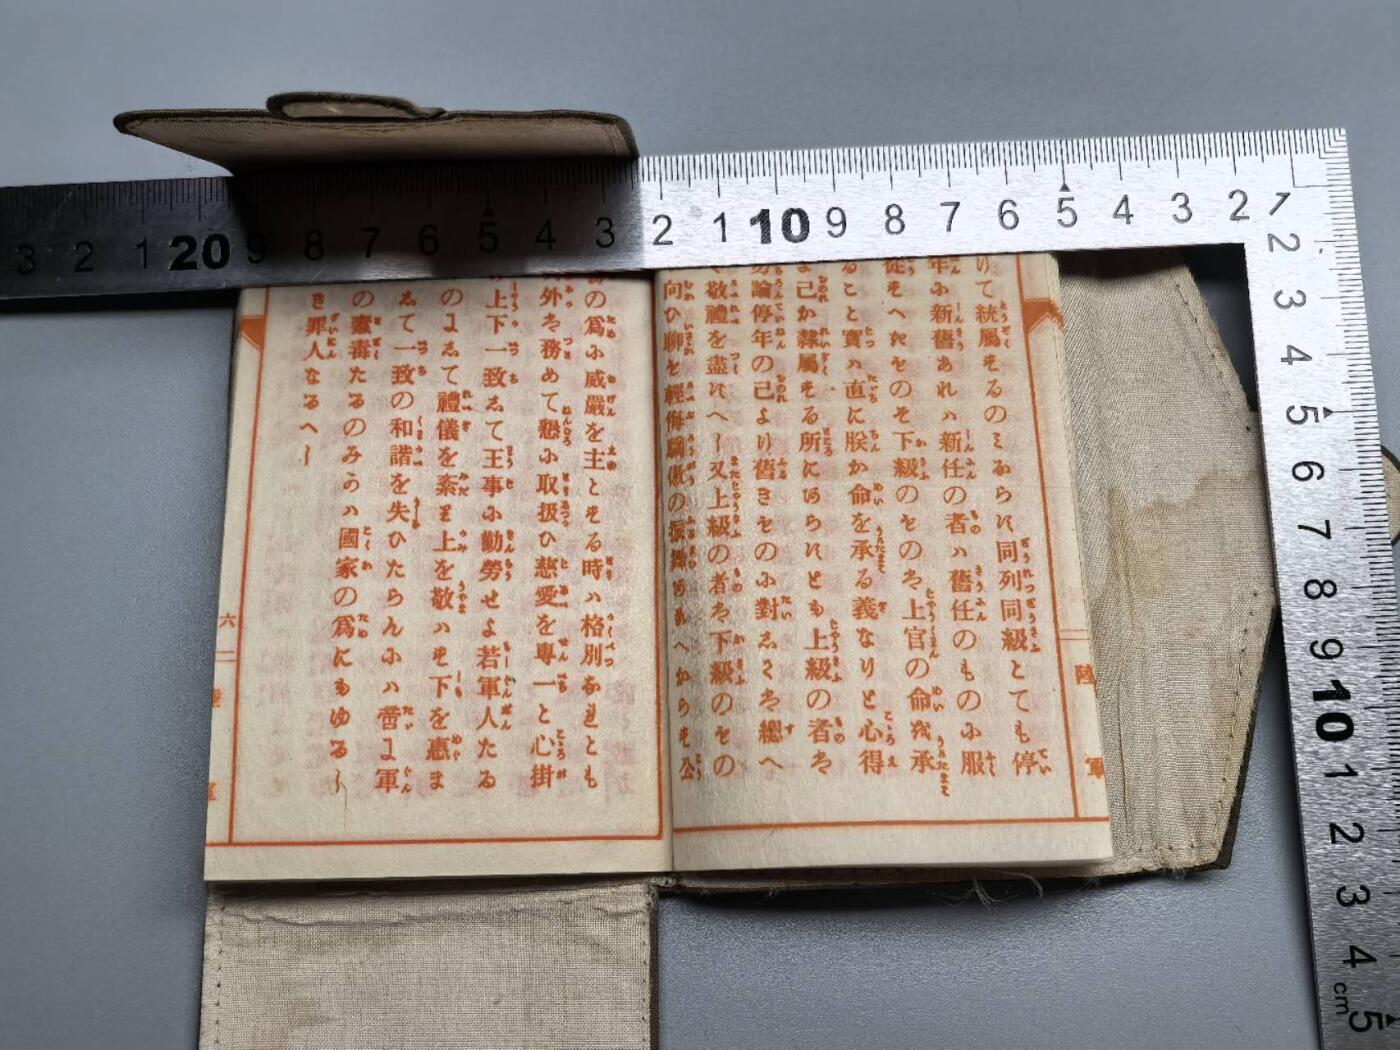 3 2 1 20 9 8 7 6 5 4 3 2 1 10 9 8 7 6 5 4 3 2 1
2
3
4
5
6
7
8
9
10
1
2
3
4
cm
5
りて統屬するのみならす同列同級とても停
年に新舊あれハ新任の者ハ舊任のものに服
從すへきものそ下級のものは上官の命を承
ること實ハ直に朕か命を承る義なりと心得
よ己か隷屬する所にあらすとも上級の者は
勿論停年の己より舊きものに對しては總へ
て敬禮を盡すへし又上級の者は下級のもの
向ひ聊も輕侮驕傲の振舞あるへからす公
の爲に威嚴を主とする時ハ格別なれとも
外は務めて懇に取扱ひ慈愛を專一と心掛
上下一致して王事に勤勞せよ若軍人たる
のにして禮儀を紊り上を敬ハす下を惠ま
して一致の和諧を失ひたらんにハ啻に軍
の蠧毒たるのみかハ國家の爲にもゆるし
き罪人なるへし
陸軍
六